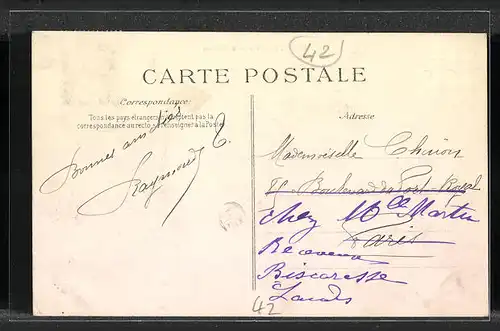 42
CARTE POSTALE
Correspondance
Tous les pays étrangers n'acceptent pas la
correspondance au recto se renseigner à la Poste
Adresse
Bonnes amitiés
Raymond
Mademoiselle Chinon
85 Boulevard du Port Royal
chez Mlle Martin
Paris
Biscarosse
Landes
42